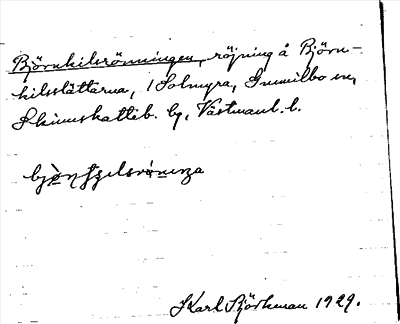 Björnkilsrönningen, röjning å Björn-
kilsslåttarna, i Solmyra, Gunnilbo sn,
Skinnskatteb. bg, Västmanl. l.
Karl Björkman 1929.